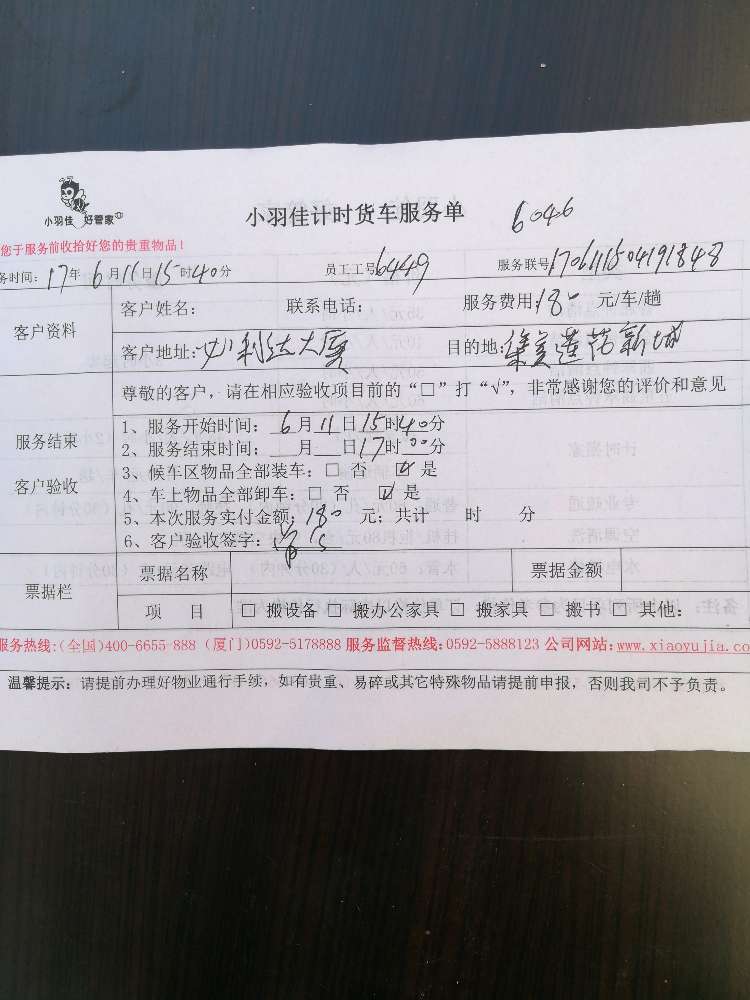 小羽佳 好管家
小羽佳计时货车服务单 6046
您于服务前收拾好您的贵重物品！
务时间：17年6月11日15时40分 员工工号6449 服务联号：1706111504191848
客户资料
客户姓名： 联系电话： 服务费用：180 元/车/趟
客户地址： 利达大厦 目的地：集美莲花新城
尊敬的客户，请在相应验收项目前的“□”打“√”，非常感谢您的评价和意见
服务结束
客户验收
1、服务开始时间：6月11日15时40分
2、服务结束时间： 月 日17时00分
3、候车区物品全部装车：□ 否 ☑ 是
4、车上物品全部卸车：□ 否 ☑ 是
5、本次服务实付金额：180 元；共计 时 分
6、客户验收签字：
票据栏
票据名称 票据金额
项 目 □ 搬设备 □ 搬办公家具 □ 搬家具 □ 搬书 □ 其他：
服务热线：(全国)400-6655-888 (厦门)0592-5178888 服务监督热线：0592-5888123 公司网站：www.xiaoyujia.co
温馨提示：请提前办理好物业通行手续，如有贵重、易碎或其它特殊物品请提前申报，否则我司不予负责。